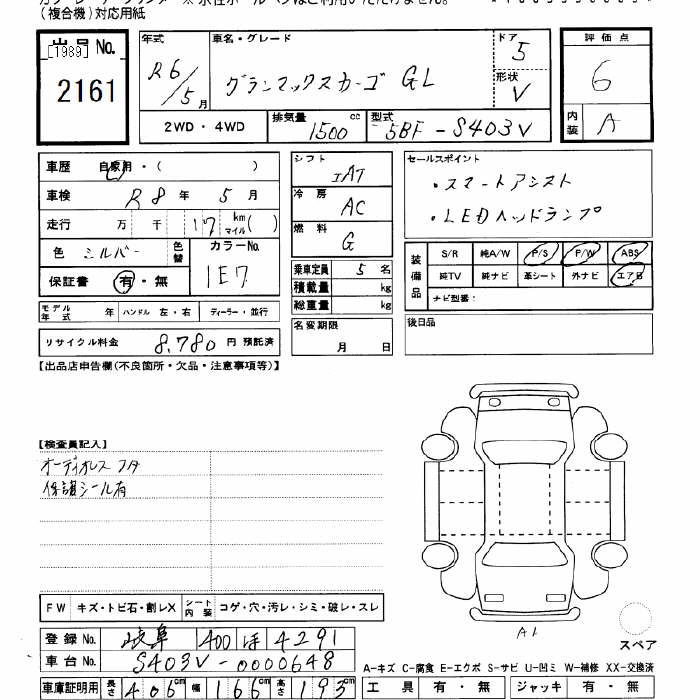 (複合機)対応用紙
出品No. [1989] 2161
年式 R6/5月 車名・グレード グランマックスカーゴ GL ドア 5 形状 V
評価点 6
内装 A
2WD・4WD 排気量 1500 cc 型式 5BF-S403V
車歴 自家用・( )
車検 R8年 5月
走行 万 千 17 km マイル( )
色 シルバー 色替 カラーNo. 1E7
保証書 有・無
モデル年式 年 ハンドル 左・右 ディーラー・並行
リサイクル料金 8,780 円 預託済
シフト IAT
冷房 AC
燃料 G
乗車定員 5 名
積載量 kg
総重量 kg
名変期限 月 日
セールスポイント
・スマートアシスト
・LEDヘッドランプ
装備品 S/R 純A/W P/S P/W ABS
純TV 純ナビ 革シート 外ナビ エアB
ナビ型番:
後日品
【出品店申告欄(不良箇所・欠品・注意事項等)】
【検査員記入】
オーディオレスフタ
保護シール有
FW キズ・トビ石・割レX シート内装 コゲ・穴・汚レ・シミ・破レ・スレ
登録No. 岐阜 400 ほ 4291
車台No. S403V-0000648
車庫証明用 長さ 406cm 幅 166cm 高さ 193cm
A1
スペア
A-キズ C-腐食 E-エクボ S-サビ U-凹ミ W-補修 XX-交換済
工具 有・無 ジャッキ 有・無